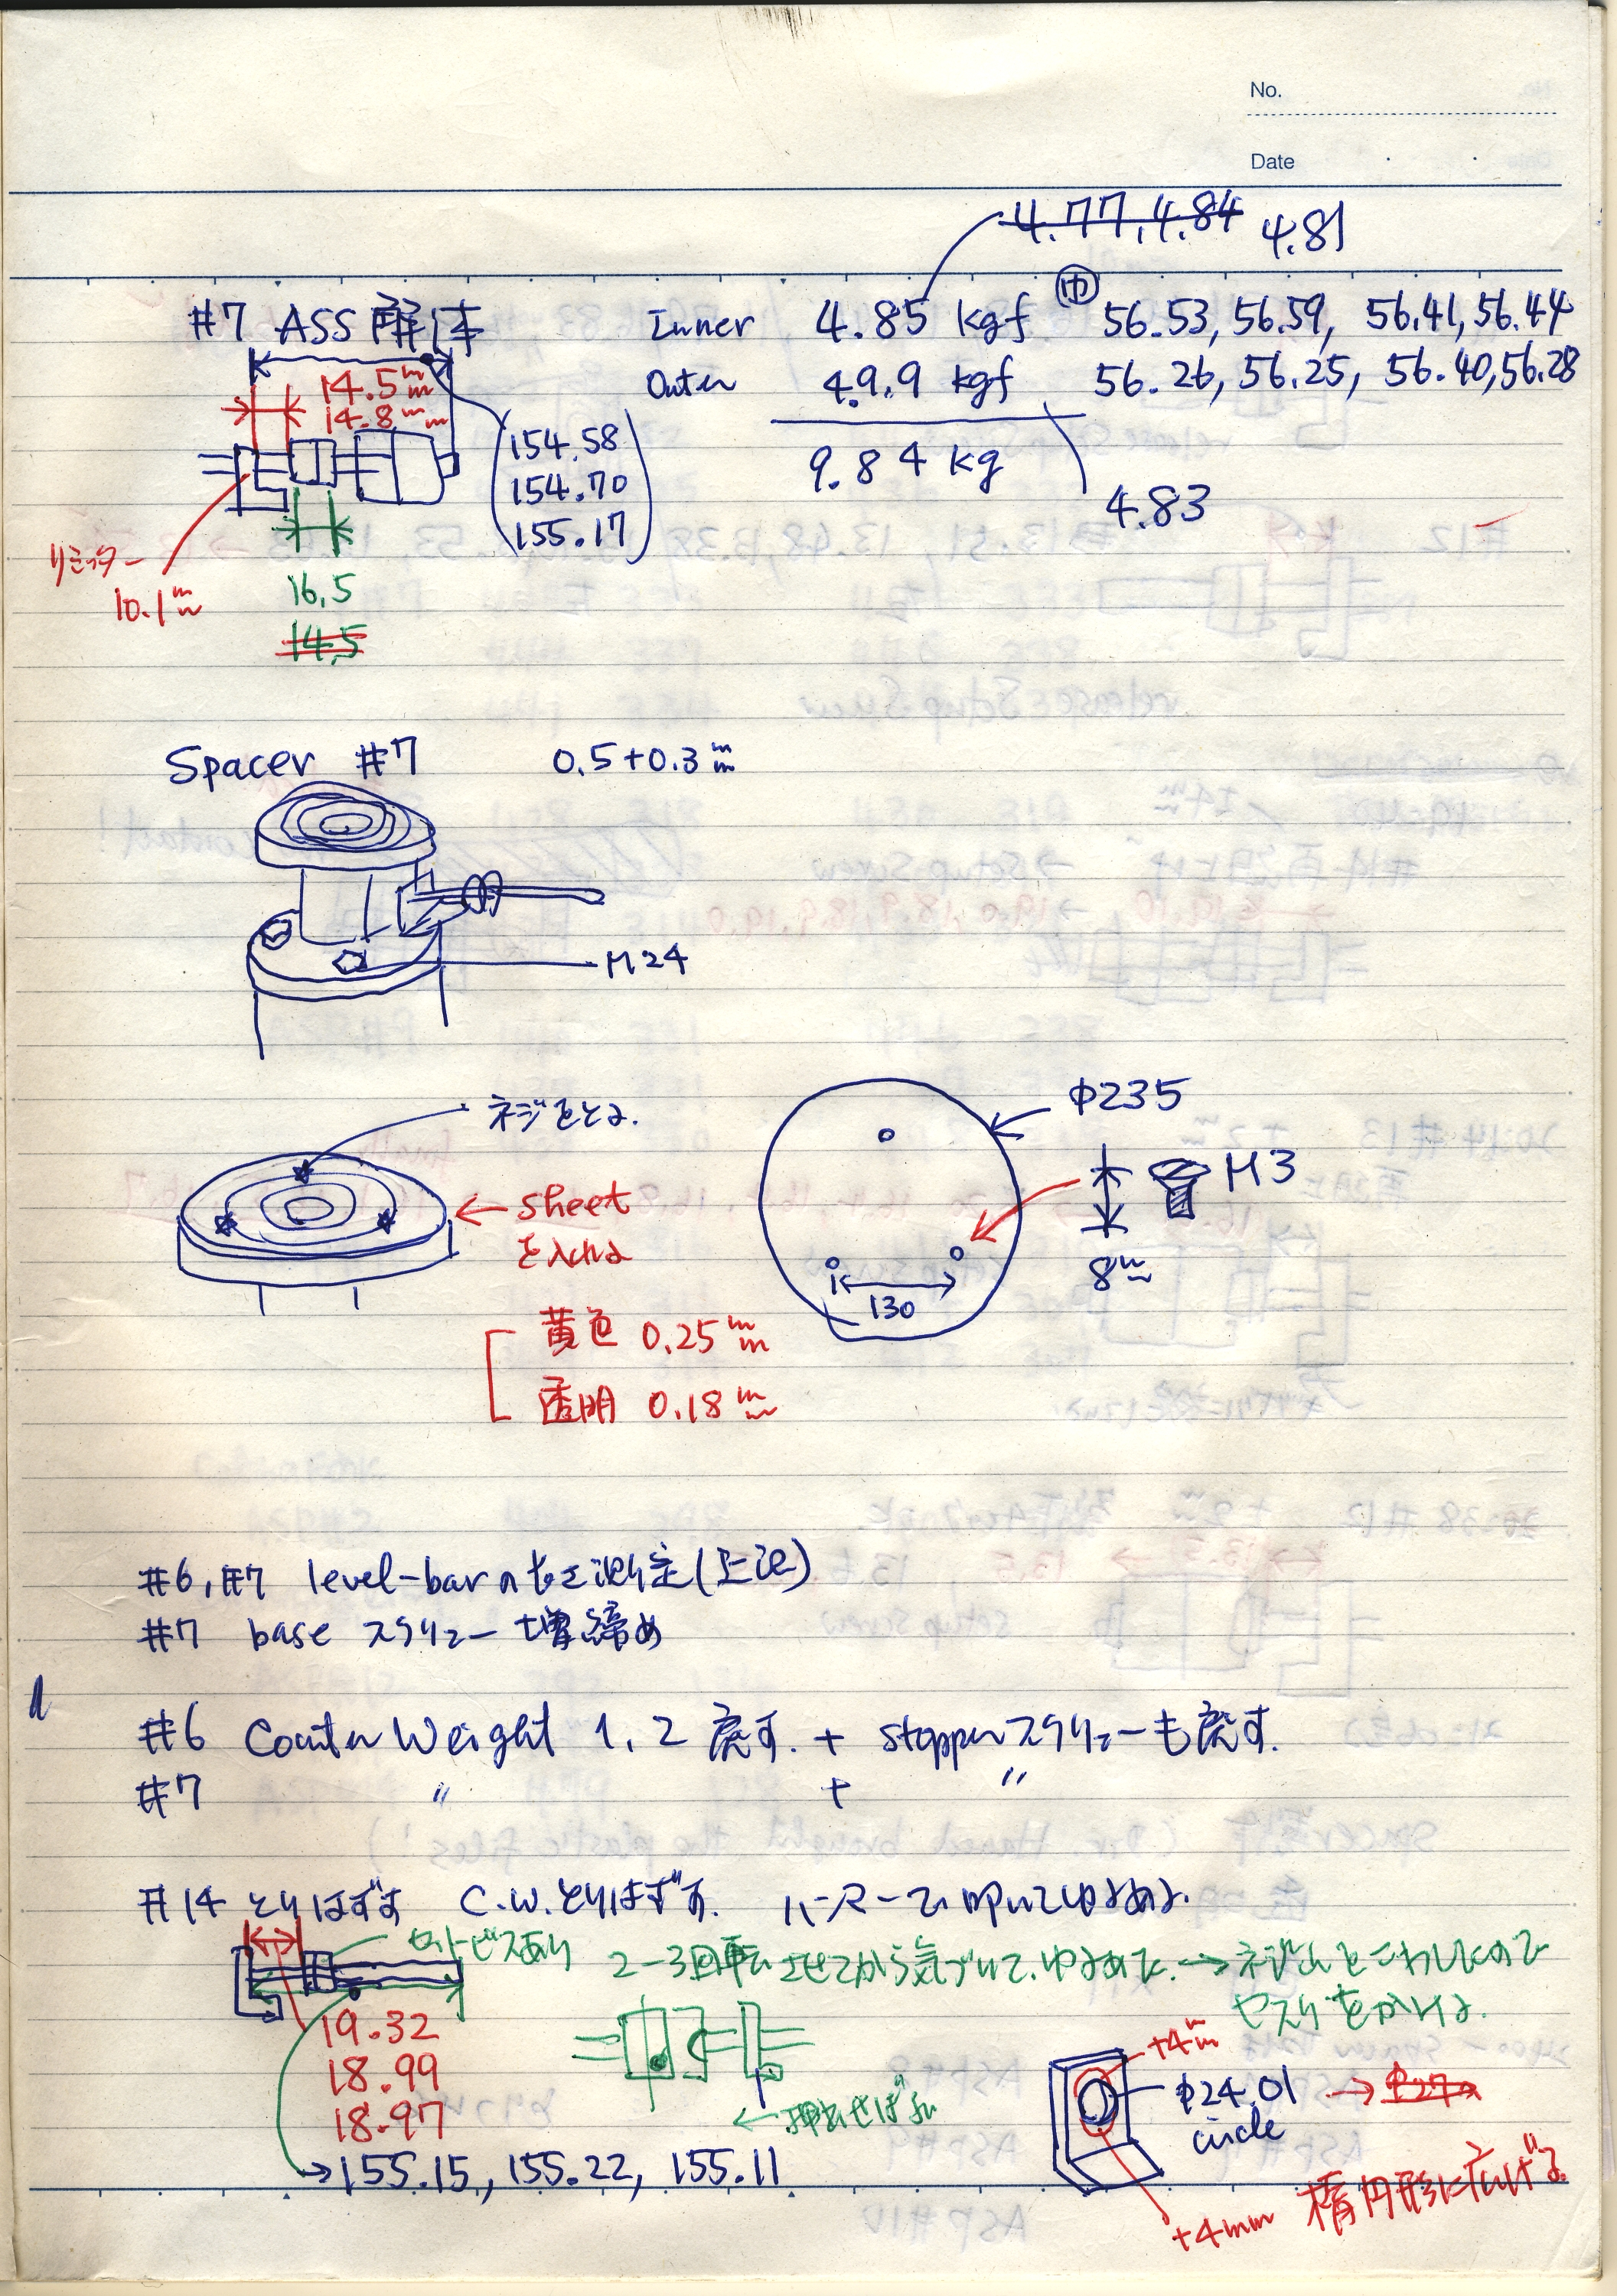 No.
Date
4.77, 4.84 4.81
#7 ASS 解体
Inner 4.85 kgf ㊥ 56.53, 56.59, 56.41, 56.44
Outer 4.9.9 kgf 56.26, 56.25, 56.40, 56.28
9.84 kg
4.83
14.5mm
14.8mm
154.58
154.70
155.17
リミッター
10.1mm
16.5
14.5
Spacer #7 0.5+0.3mm
M24
ネジをとる.
sheet
を入れる
黄色 0.25mm
透明 0.18mm
φ235
M3
8mm
130
#6, #7 level-barの長さ測定(上記)
#7 base スクリュー 増締め
#6 Counter Weight 1, 2 戻す. + stopperスクリューも戻す.
#7 〃 + 〃
#14 とりはずす C.W.とりはずす. ハンマーで叩いてゆるめる.
セットビスあり
2-3回転させてから気づいて、ゆるめた. → ネジ山をこわしたので
ヤスリをかける.
19.32
18.99
18.97
155.15, 155.22, 155.11
←押せばよい
+4mm
φ24.01 → φ27
circle
+4mm 楕円形に広げる